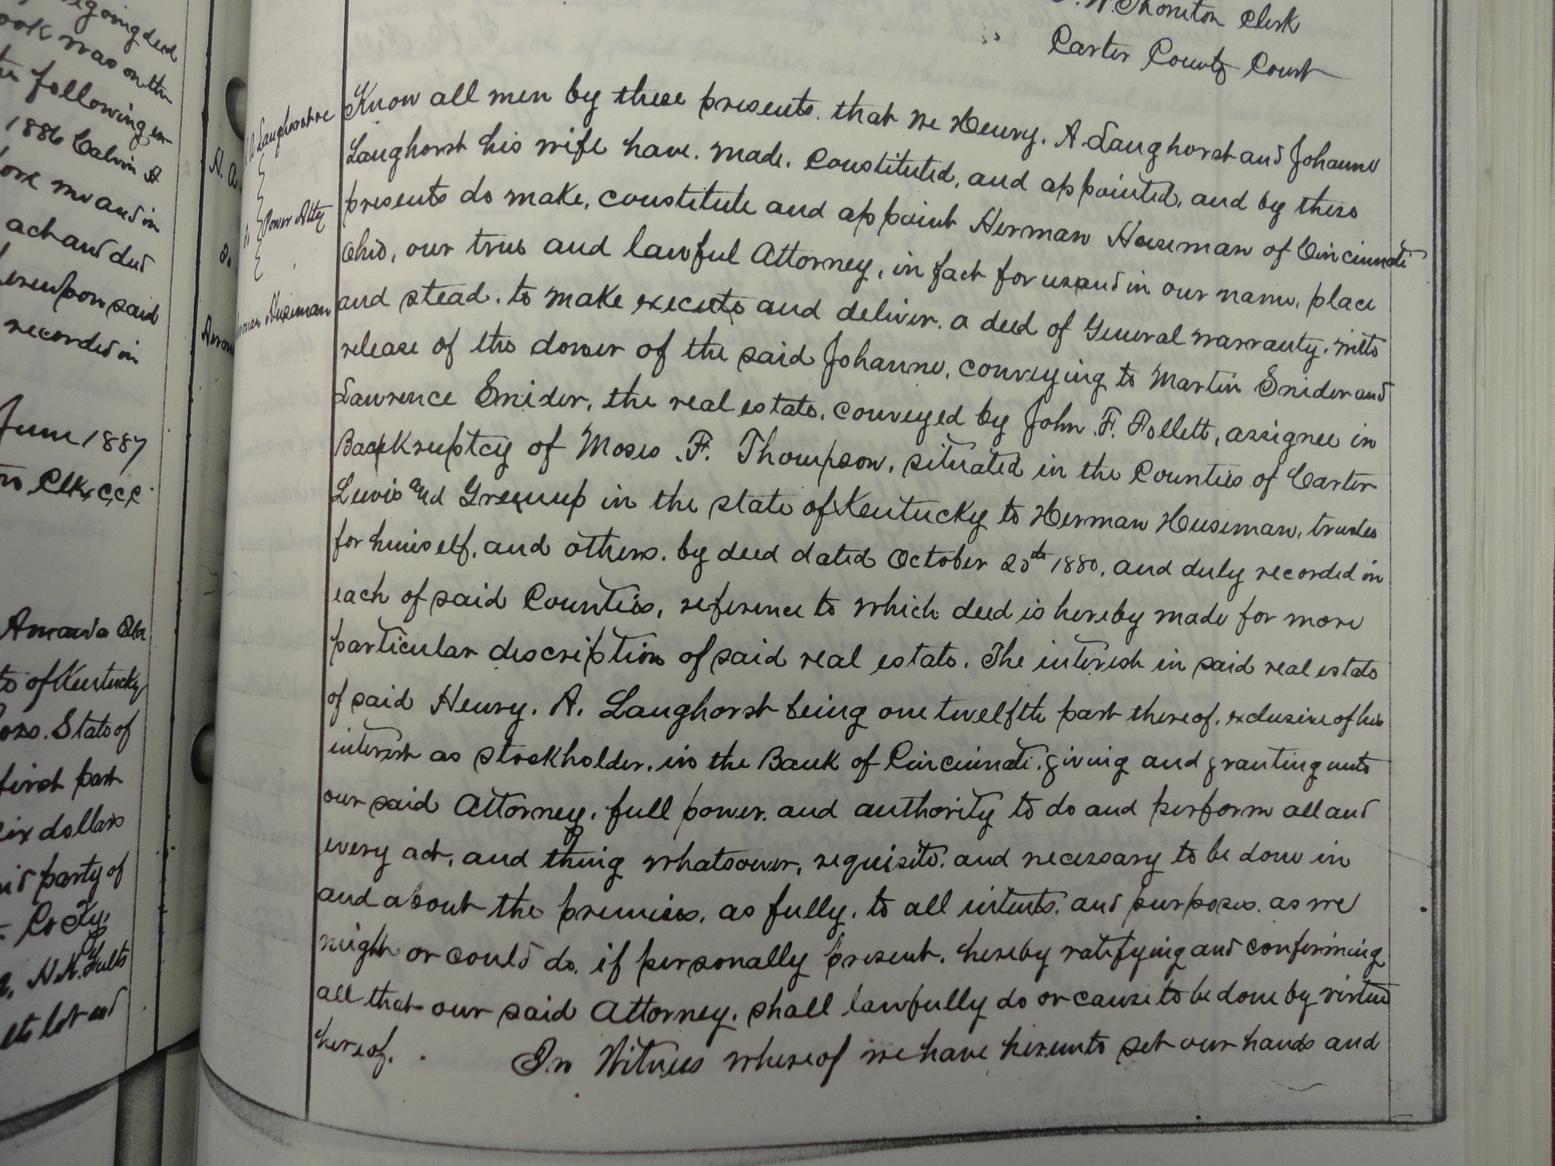 going deed
ook was on the
the following en
1886 Calvin A
ore me and in
act and deed
hereupon said
recorded in
June 1887
Clk C.C.C.
Amanda
to of Kentucky
State of
first part
six dollars
party of
Co Ky.
N. N. Fults
lot and
W. Thornton Clerk
Carter County Court
Laughorst
Power Atty
Huseman
Know all men by these presents. that we Henry. A. Laughorst and Johanne
Laughorst his wife have. made. Constituted, and appointed, and by these
presents do make, constitute and appoint Herman Huseman of Cincinnati
Ohio, our true and lawful Attorney, in fact for us and in our name, place
and stead. to make execute and deliver. a deed of General warranty. with
release of the dower of the said Johanne, conveying to Martin Snider and
Lawrence Snider, the real estate, conveyed by John. F. Follett, assignee in
Backkruptcy of Moses .F. Thompson, situated in the Counties of Carter
Lewis and Greenup in the state of Kentucky to Herman Huseman, trustee
for himself, and others. by deed dated October 25th 1880, and duly recorded in
each of said Counties, reference to which deed is hereby made for more
particular description of said real estate. The interest in said real estate
of said Henry. A. Laughorst being one twelfth part thereof, exclusive of his
interest as stockholder, in the Bank of Cincinnati. giving and granting unto
our said Attorney, full power. and authority to do and perform all and
every act, and thing whatsoever, requisite. and necessary to be done in
and about the premises, as fully. to all intents. and purposes. as we
might or could do, if personally present. hereby ratifying and confirming
all that our said Attorney, shall lawfully do or cause to be done by virtue
hereof. In Witness whereof we have hereunto set our hands and